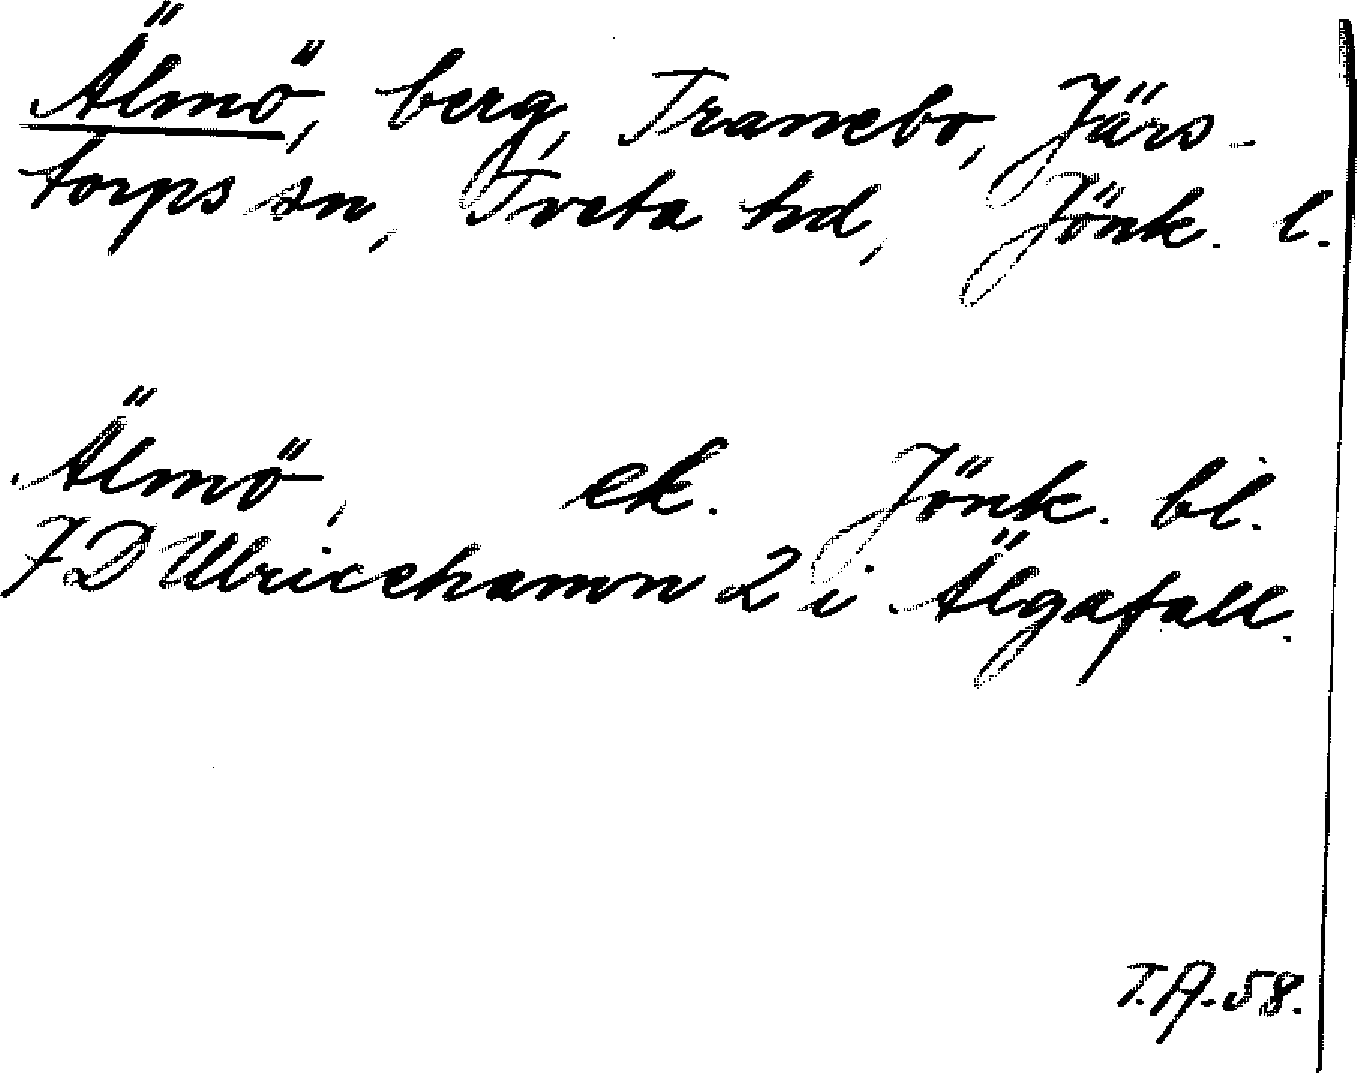 Älmö, berg, Tranebo, Järs-
torps sn, Tveta hd, Jönk. l.
Älmö, ek. Jönk. bl.
7D Ulricehamn 2 i Älgafall.
T.A. 58.